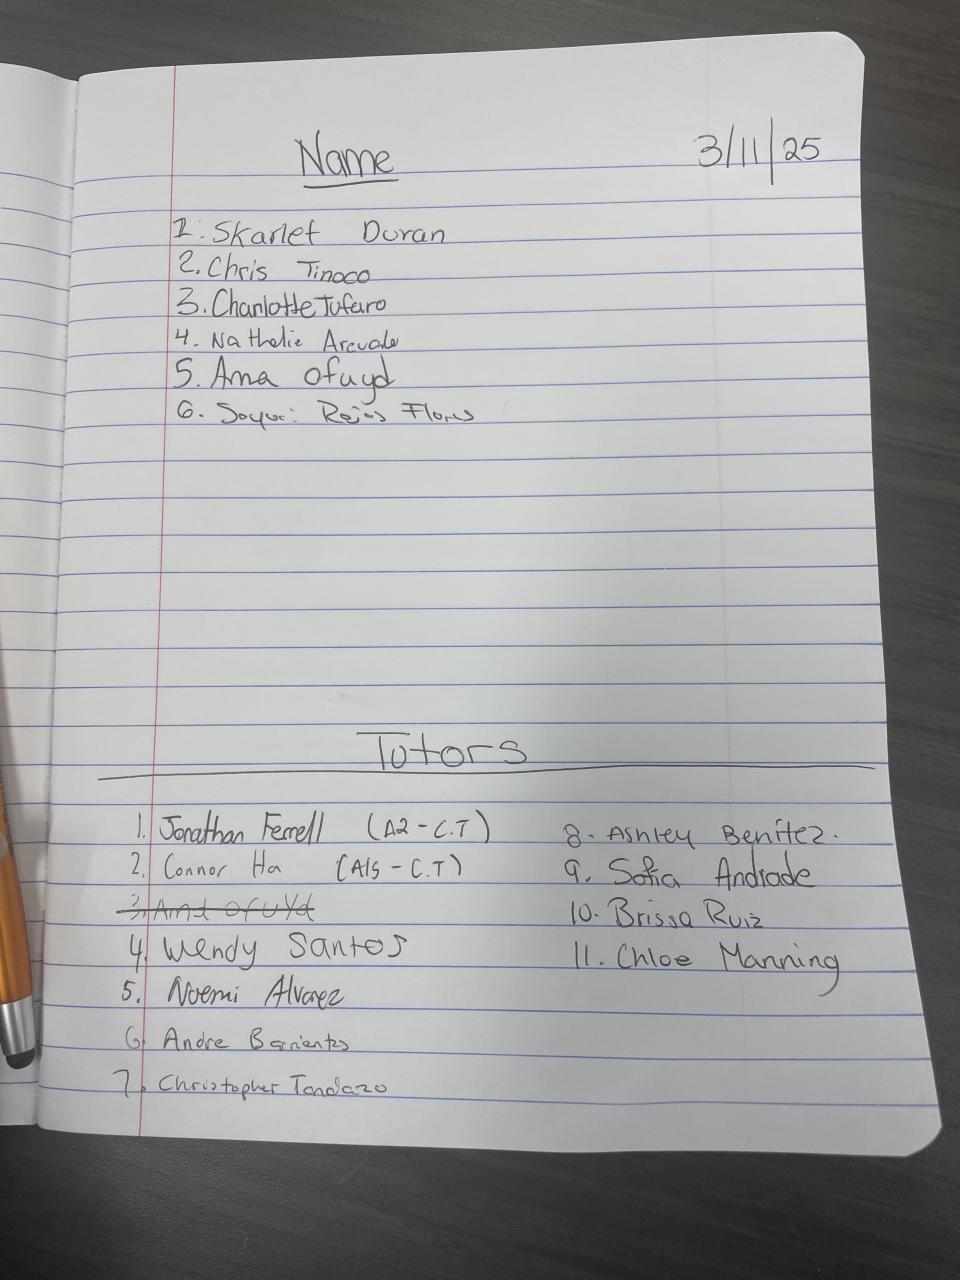 Name
3/11/25
1. Skarlet Duran
2. Chris Tinoco
3. Charlotte Tufaro
4. Nathalie Arevalo
5. Ama Ofuyd
6. Rojas Flores
Tutors
1. Jonathan Ferrell (A2 - C.T)
2. Connor Ha (A15 - C.T)
3. Ama Ofuyd
4. Wendy Santos
5. Noemi Alvarez
6. Andre Barrientos
7. Christopher Tandazo
8. Ashley Benitez.
9. Sofia Andrade
10. Brissa Ruiz
11. Chloe Manning